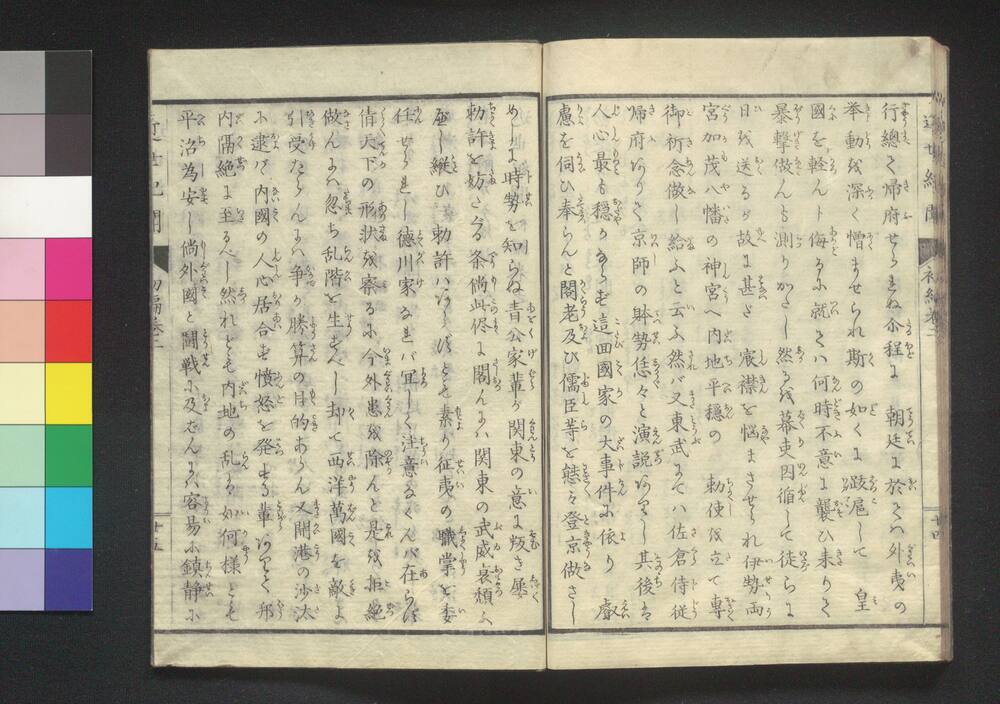 行總て帰府せられね介程に　朝廷に於ては外夷の
挙動を深く憎ませられ斯の如くに跋扈して　皇
國を軽んト侮るに就ては何時不意に襲ひ来りて
暴撃做んも測りかたし然るを幕吏因循して徒らに
日を送るが故に甚だ　宸襟を悩まさせられ伊勢両
宮加茂八幡の神宮へ内地平穏の　勅使を立て専
御祈念做し給ふと云ふ然バ又東武にては佐倉侍従
帰府ありて京師の時勢恁々と演説ありし其後は
人心最も穏かならず這回國家の大事件に依り　叡
慮を伺ひ奉らんと閣老及び儒臣等を態々登京做さし
めしに時勢を知らぬ青公家輩が関東の意に叛き屡
勅許を妨さる条倘此侭に閣んには関東の武威衰頽ふ
至し縦ひ勅許はあらずとも素より征夷の職掌を委
任せられし徳川家なれバ冝しく注意なくんバ在らず
倩天下の形状を察るに今外患を除んと是を拒絶
做んには忽ち乱階を生ずべし却て西洋萬國を敵に
引受たらんには争か勝算の目的あらん又開港の沙汰
に逮バ内國の人心居合ず憤怒を発する輩ありて邦
内隔絶に至るべし然れども内地の乱は如何様とも
平治為安し倘外國と闘戦に及ばんには容易に鎮静に
近世紀聞
初編巻二
廿四
近世紀聞
初編巻二
廿五